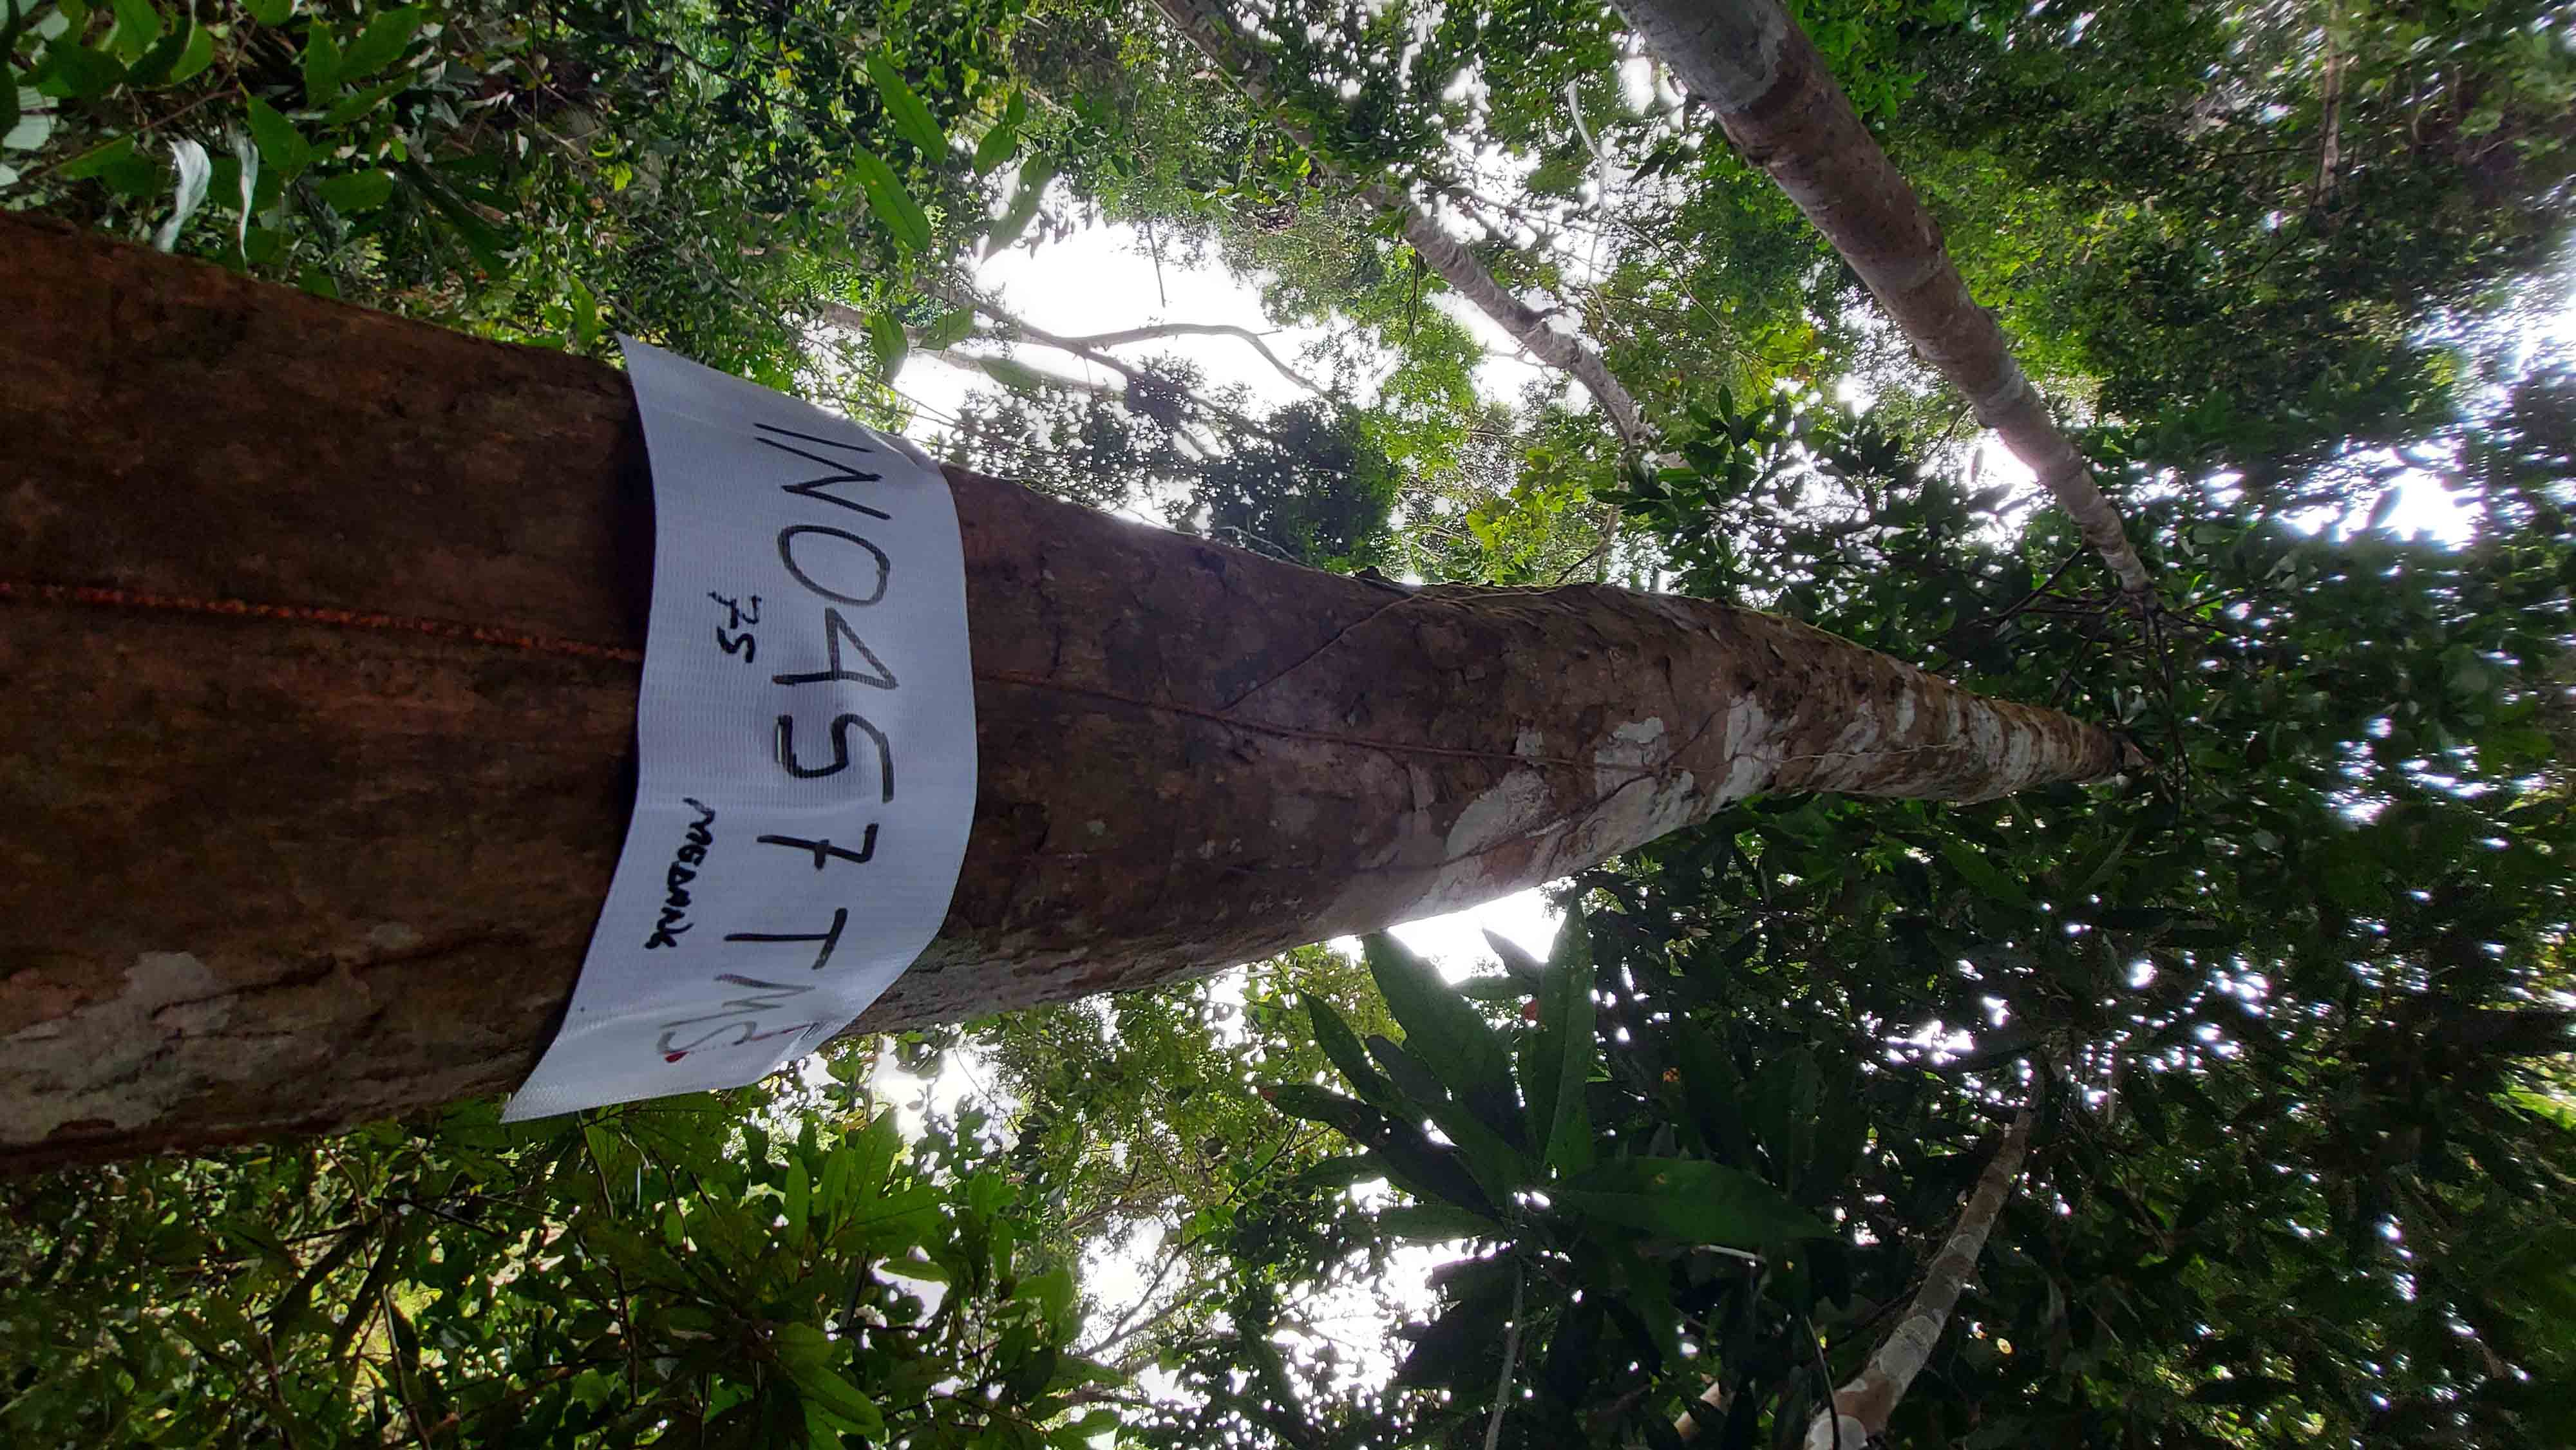 INO457TMS
75
MEDANG